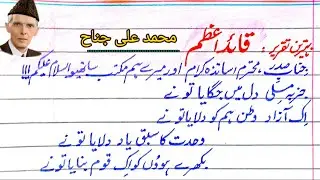 بہترین تقریر: قائد اعظم محمد علی جناح
جناب صدر محترم اساتذہ کرام اور میرے ہم مکتب ساتھیو السلام علیکم !!!
جذبہ مسلمی دل میں جگایا تو نے
اک آزاد وطن ہم کو دلایا تو نے
وحدت کا سبق یاد دلایا تو نے
بکھرے ہوؤں کو اک قوم بنایا تو نے